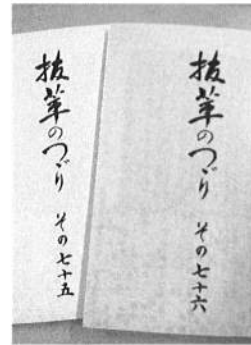 抜萃のつゞり その七十六
抜萃のつゞり その七十五